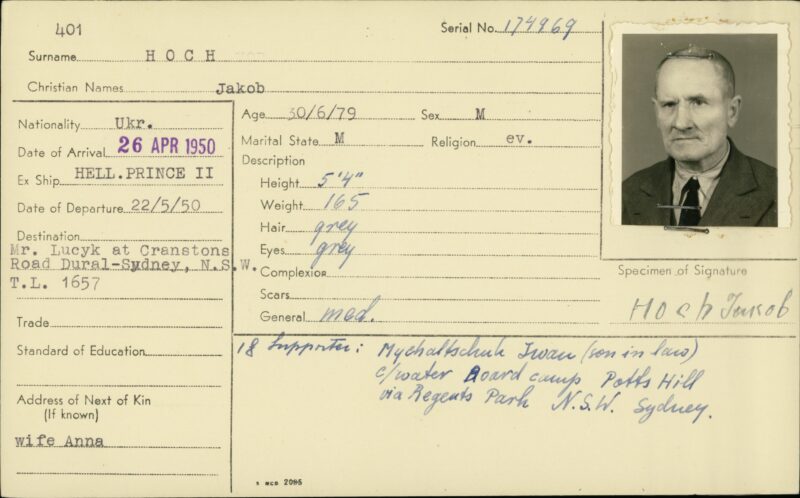 401
Serial No. 174969
Surname HOCH
Christian Names Jakob
Nationality Ukr.
Date of Arrival 26 APR 1950
Ex Ship HELL.PRINCE II
Date of Departure 22/5/50
Destination
Mr. Lucyk at Cranstons
Road Dural-Sydney, N.S.W.
T.L. 1657
Trade
Standard of Education
Address of Next of Kin
(If known)
wife Anna
Age 30/6/79 Sex M
Marital State M Religion ev.
Description
Height 5'4"
Weight 165
Hair grey
Eyes grey
Complexion
Scars
General med.
Specimen of Signature
Hoch Jakob
18 Supporter: Mychaltschuk Iwan (son in law)
c/water Board camp Potts Hill
via Regents Park N.S.W. Sydney.
5 MCD 2095